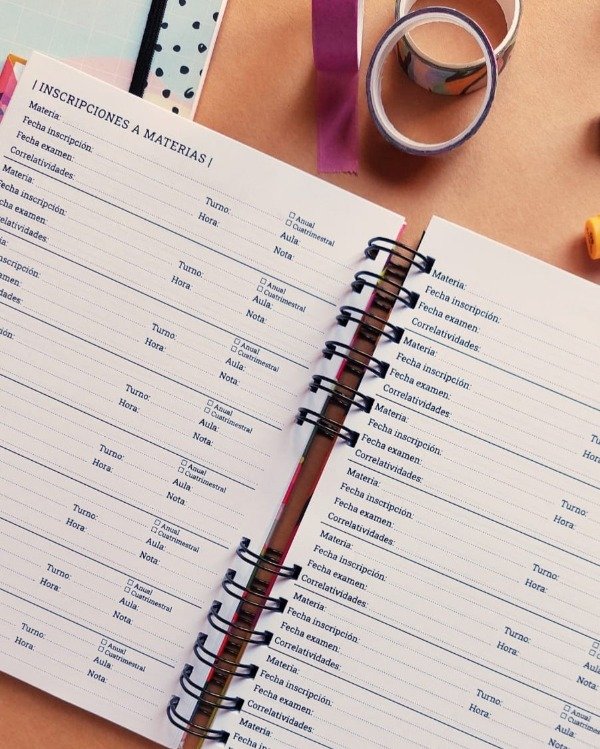 | INSCRIPCIONES A MATERIAS |
Materia: Anual
Cuatrimestral
Fecha inscripción: Turno: Aula:
Fecha examen: Hora: Nota:
Correlatividades:
Materia: Anual
Cuatrimestral
Fecha inscripción: Turno: Aula:
Fecha examen: Hora: Nota:
Correlatividades:
Anual
Cuatrimestral
Turno: Aula:
Hora: Nota:
Anual
Cuatrimestral
Turno: Aula:
Hora: Nota:
Anual
Cuatrimestral
Turno: Aula:
Hora: Nota:
Anual
Cuatrimestral
Turno: Aula:
Hora: Nota:
Anual
Cuatrimestral
Turno: Aula:
Hora: Nota:
Anual
Cuatrimestral
Turno: Aula:
Hora: Nota:
Materia:
Fecha inscripción:
Fecha examen:
Correlatividades:
Materia:
Fecha inscripción:
Fecha examen:
Correlatividades:
Materia:
Fecha inscripción: Turno:
Fecha examen: Hora:
Correlatividades:
Materia:
Fecha inscripción: Turno:
Fecha examen: Hora:
Correlatividades:
Materia:
Fecha inscripción: Turno:
Fecha examen: Hora:
Correlatividades:
Materia: Anual
Cuatrimestral
Fecha inscripción: Turno:
Fecha examen: Hora:
Correlatividades:
Materia:
Fecha inscripción:
Fecha examen:
Correlatividades:
Materia: